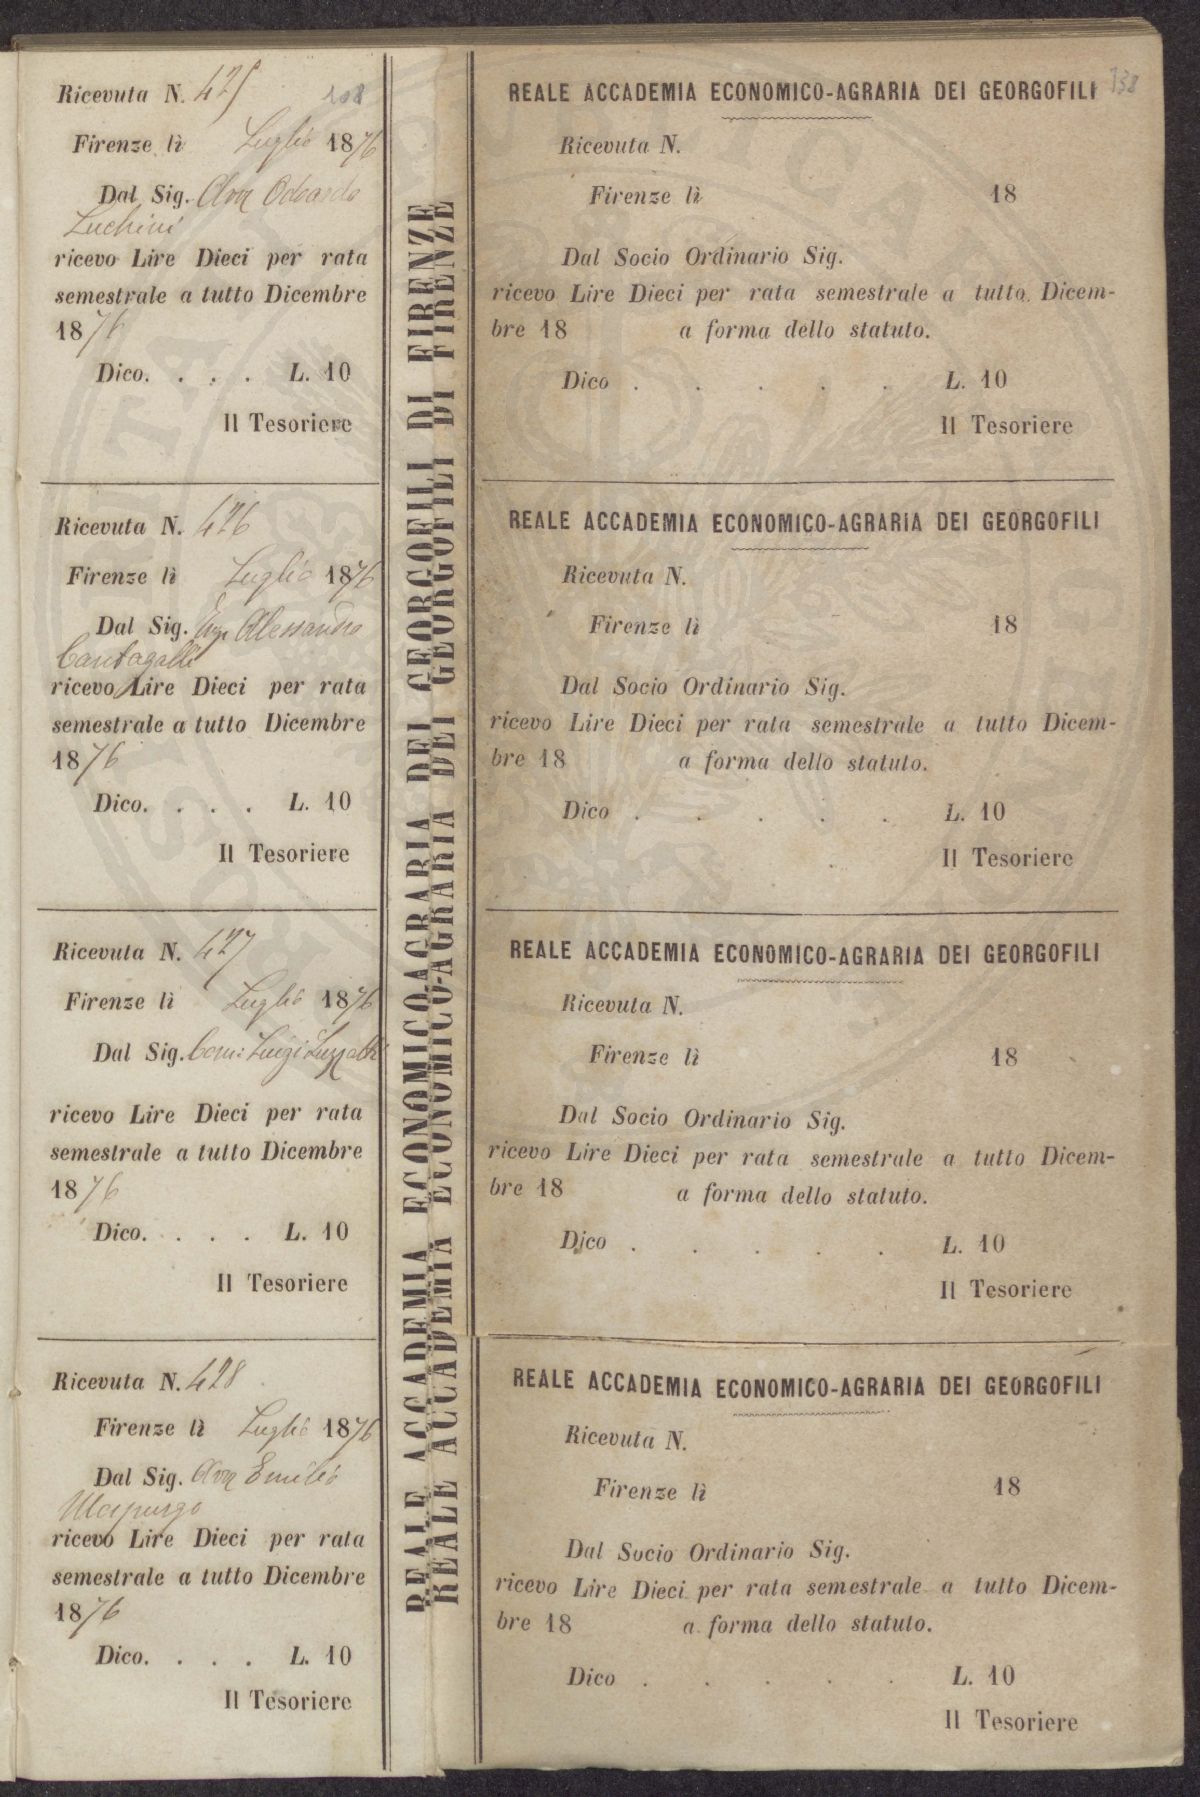 Ricevuta N. 425
108
Firenze lì Luglio 1876
Dal Sig. Avv Odoardo
Luchini
ricevo Lire Dieci per rata
semestrale a tutto Dicembre
1876
Dico. . . . L. 10
Il Tesoriere
Ricevuta N. 426
Firenze lì Luglio 1876
Dal Sig. Ing. Alessandro
Cantagalli
ricevo Lire Dieci per rata
semestrale a tutto Dicembre
1876
Dico. . . . L. 10
Il Tesoriere
Ricevuta N. 427
Firenze lì Luglio 1876
Dal Sig. Com: Luigi Luzzatti
ricevo Lire Dieci per rata
semestrale a tutto Dicembre
1876
Dico. . . . L. 10
Il Tesoriere
Ricevuta N. 428
Firenze lì Luglio 1876
Dal Sig. Avv Emilio
Morpurgo
ricevo Lire Dieci per rata
semestrale a tutto Dicembre
1876
Dico. . . . L. 10
Il Tesoriere
REALE ACCADEMIA ECONOMICO-AGRARIA DEI GEORGOFILI DI FIRENZE
REALE ACCADEMIA ECONOMICO-AGRARIA DEI GEORGOFILI DI FIRENZE
REALE ACCADEMIA ECONOMICO-AGRARIA DEI GEORGOFILI
138
Ricevuta N.
Firenze lì 18
Dal Socio Ordinario Sig.
ricevo Lire Dieci per rata semestrale a tutto Dicem-
bre 18 a forma dello statuto.
Dico . . . . . L. 10
Il Tesoriere
REALE ACCADEMIA ECONOMICO-AGRARIA DEI GEORGOFILI
Ricevuta N.
Firenze lì 18
Dal Socio Ordinario Sig.
ricevo Lire Dieci per rata semestrale a tutto Dicem-
bre 18 a forma dello statuto.
Dico . . . . . L. 10
Il Tesoriere
REALE ACCADEMIA ECONOMICO-AGRARIA DEI GEORGOFILI
Ricevuta N.
Firenze lì 18
Dal Socio Ordinario Sig.
ricevo Lire Dieci per rata semestrale a tutto Dicem-
bre 18 a forma dello statuto.
Dico . . . . . L. 10
Il Tesoriere
REALE ACCADEMIA ECONOMICO-AGRARIA DEI GEORGOFILI
Ricevuta N.
Firenze lì 18
Dal Socio Ordinario Sig.
ricevo Lire Dieci per rata semestrale a tutto Dicem-
bre 18 a forma dello statuto.
Dico . . . . . L. 10
Il Tesoriere